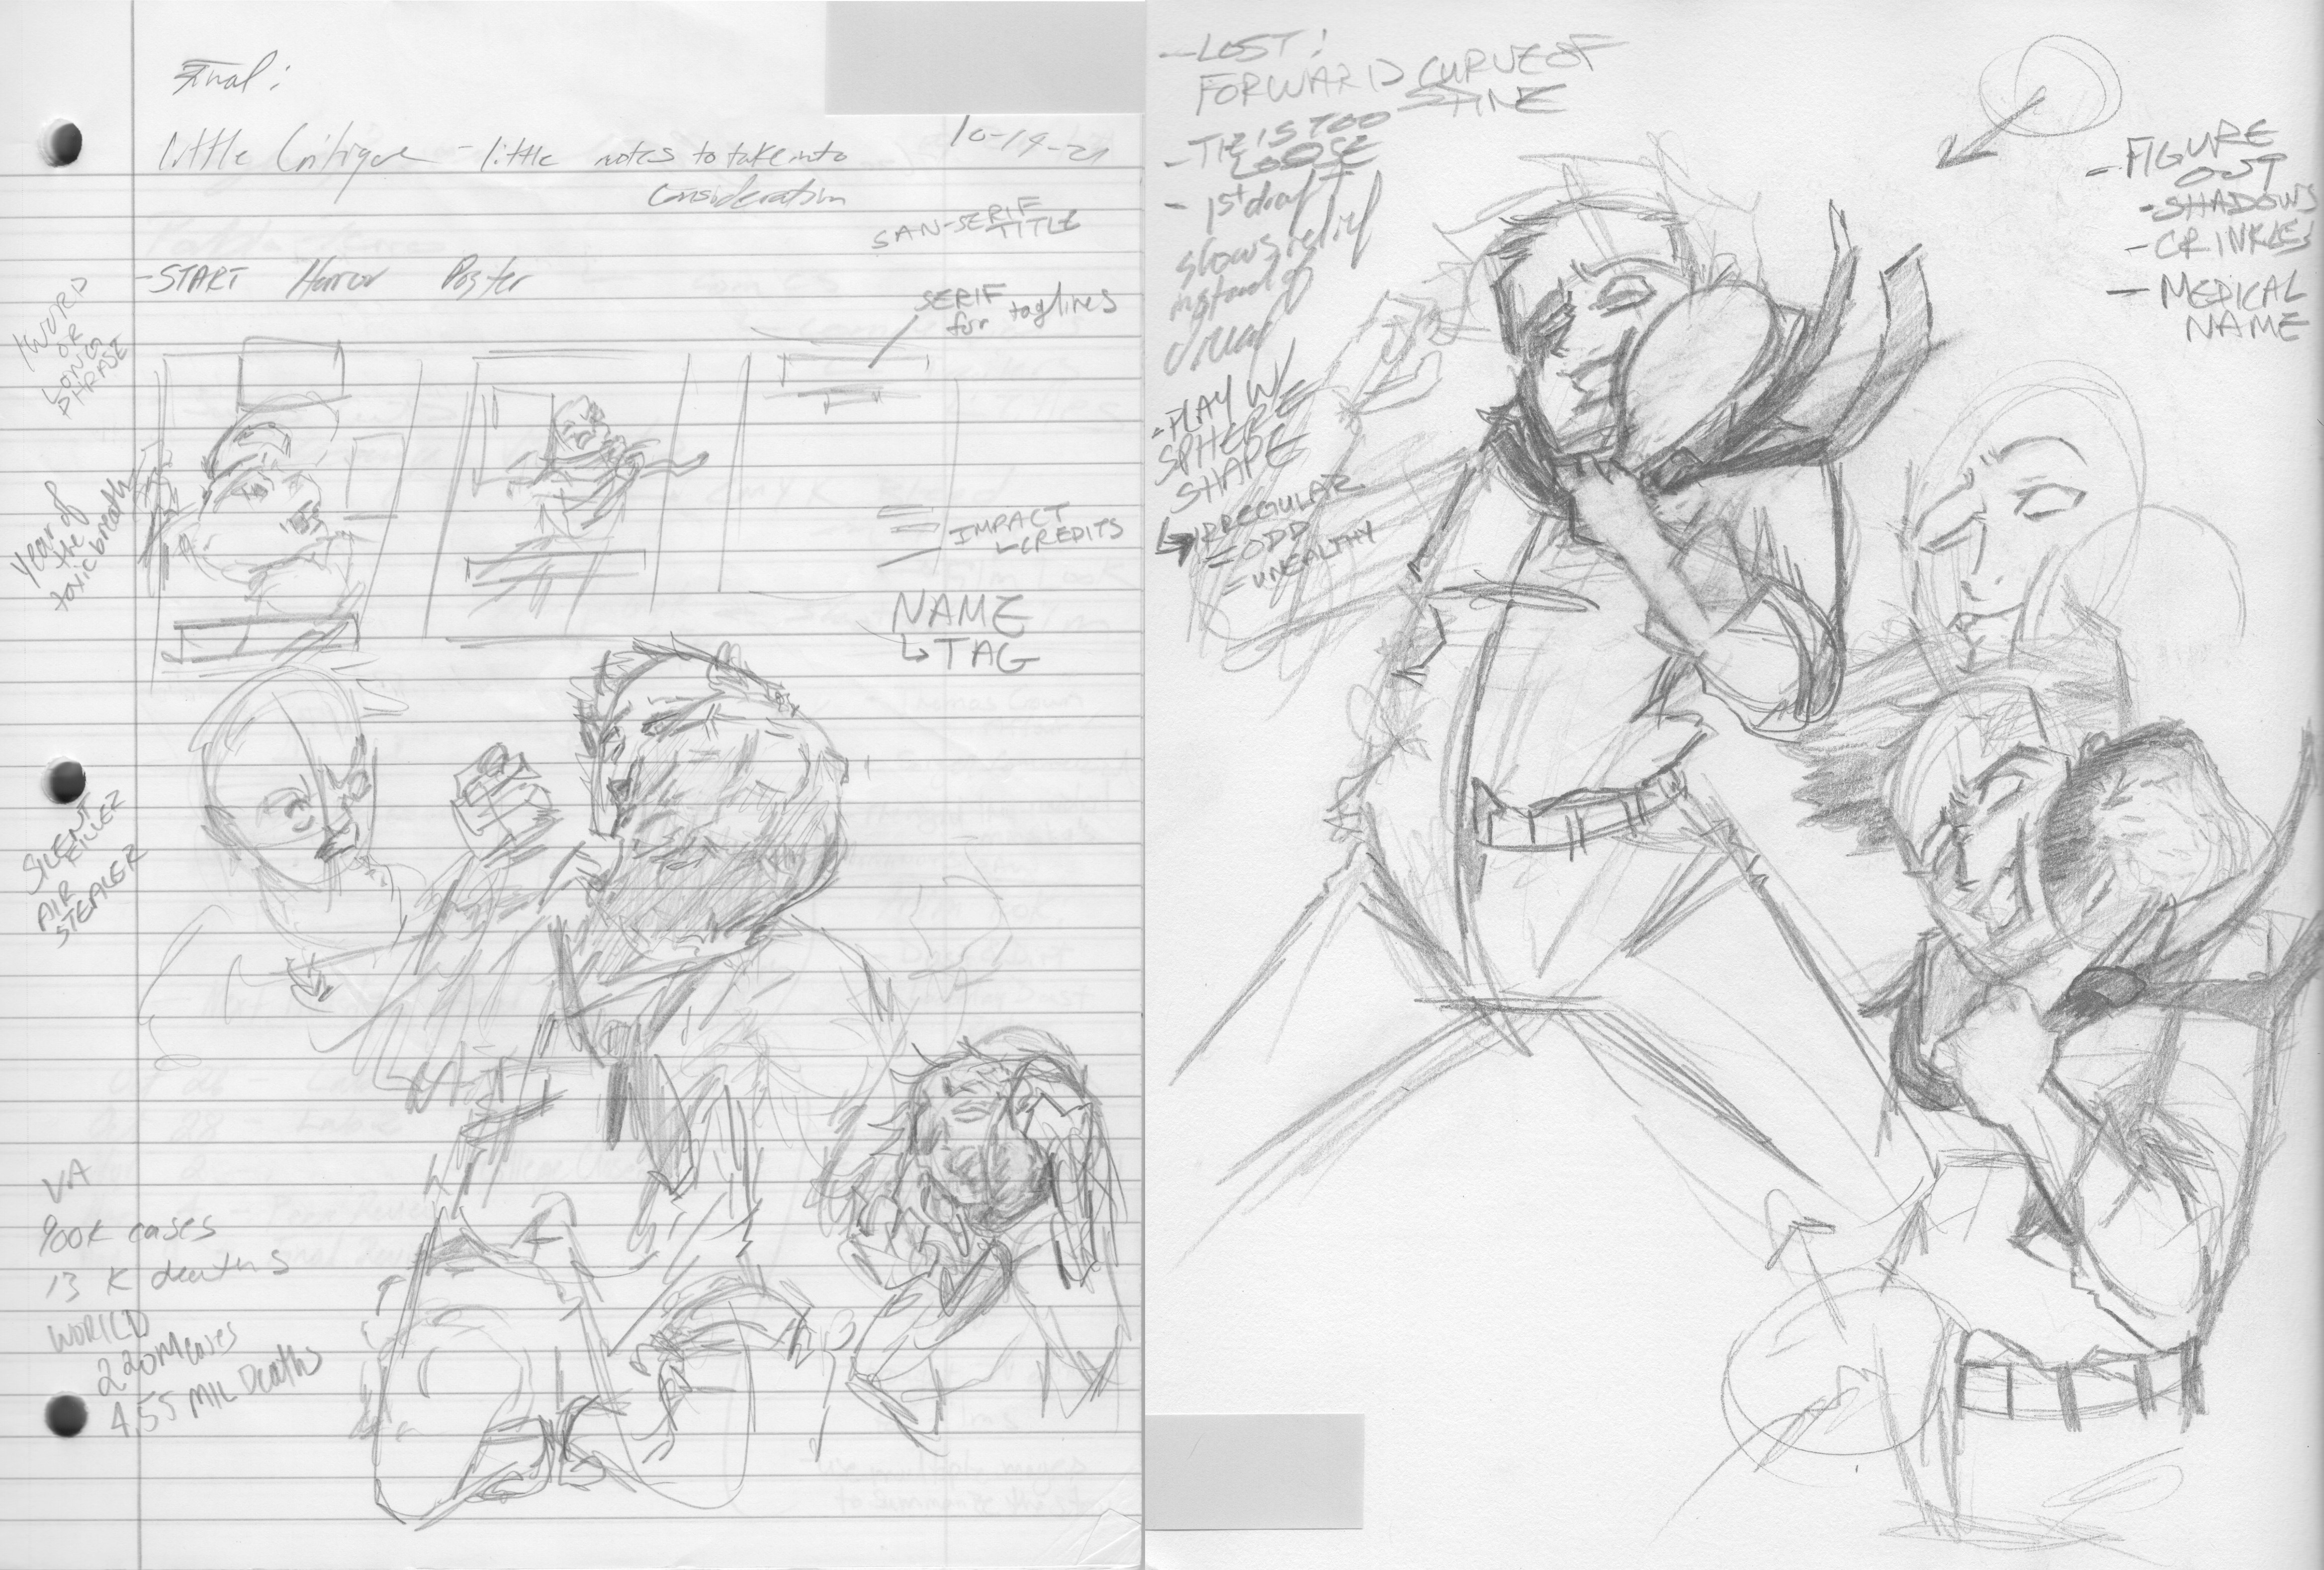 Final:
10-19-21
little Critique - little notes to take into
consideration
SAN-SERIF
TITLE
-START Horror Poster
SERIF
for taglines
1 WORD
OR
LONG
PHRASE
Year of
the
toxic breath
IMPACT
CREDITS
NAME
TAG
SILENT
KILLER
AIR
STEALER
VA
900K cases
13 K deaths
WORLD
220M cases
4.55 MIL Deaths
-LOST:
FORWARD CURVE OF
SPINE
-TIE IS TOO
LOOSE
- 1st draft
shows relief
instead of
dread
-PLAY W/
SPHERE
SHAPE
IRREGULAR
=ODD
=UNEALTHY
-FIGURE
OUT
-SHADOWS
-CRINKLES
-MEDICAL
NAME